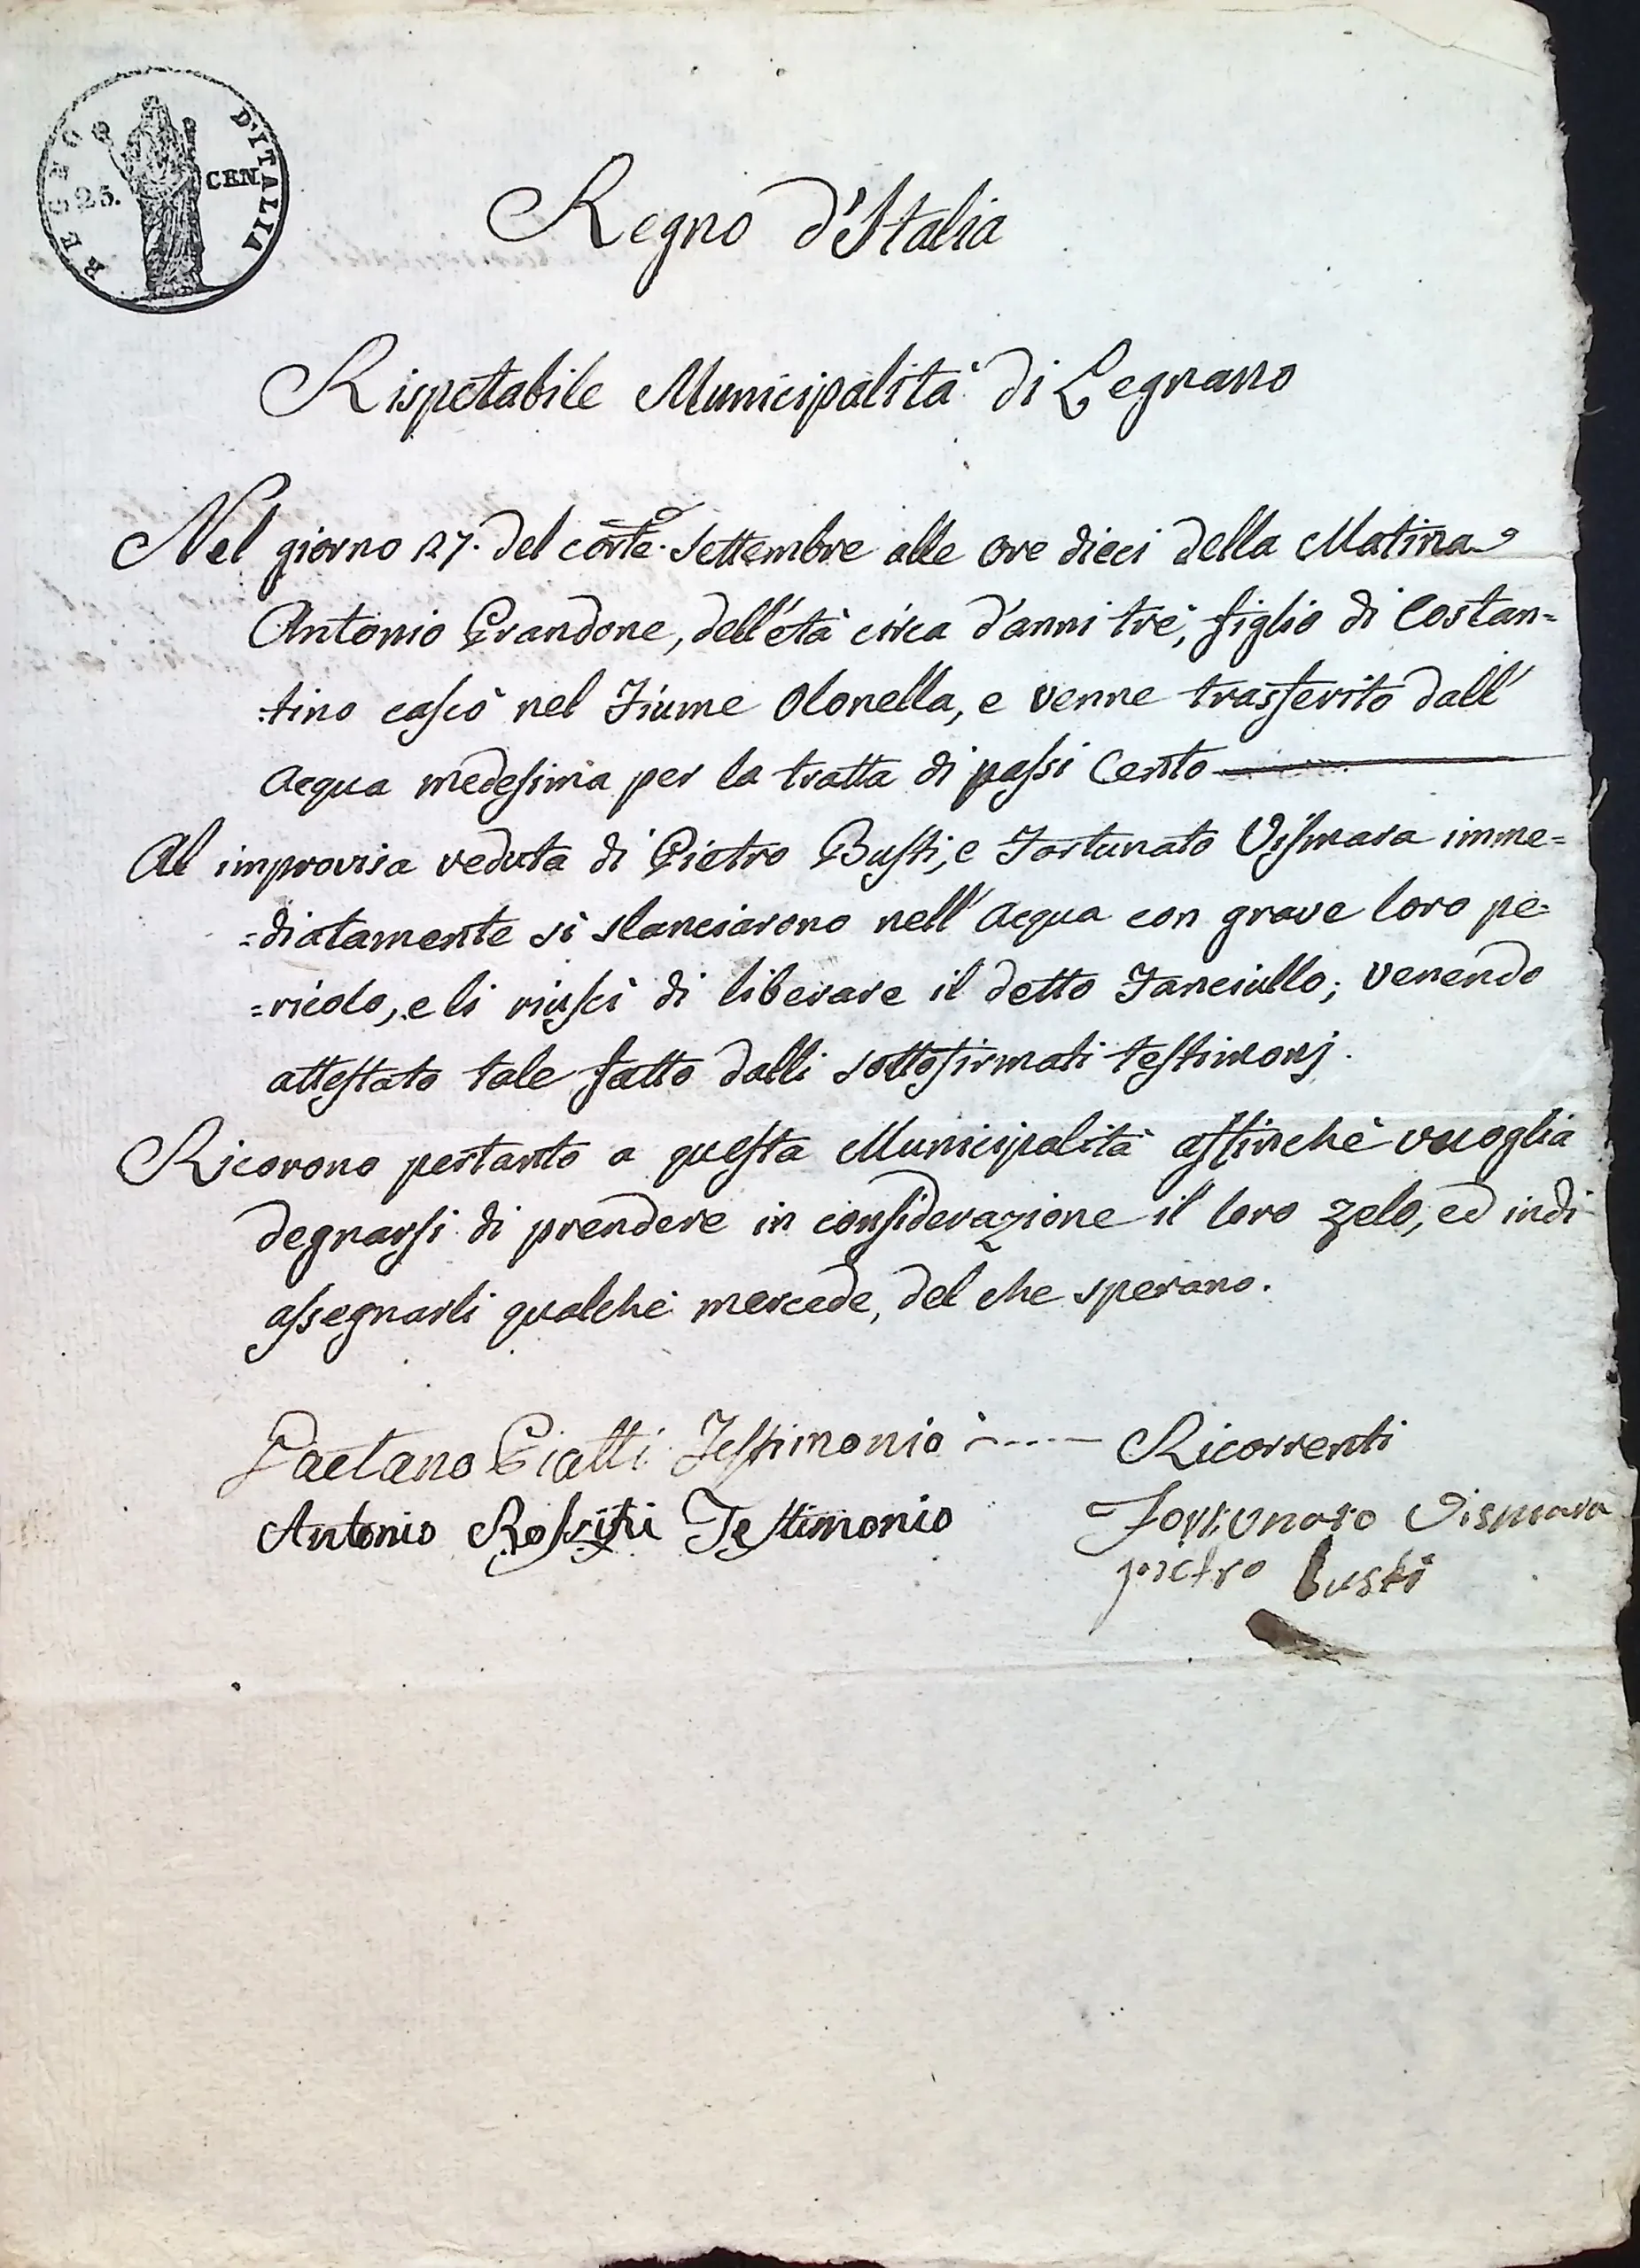 REGNO D'ITALIA
25. CEN.
Regno d'Italia
Rispettabile Municipalità di Legnano
Nel giorno 27. del corte. Settembre alle ore dieci della Matina
Antonio Grandone, dell'età circa d'anni trè, figlio di Costan=
=tino cascò nel Fiume Olonella, e venne trasferito dall'
Acqua medesima per la tratta di passi Cento
Al improvisa veduta di Pietro Busti, e Fortunato Vismara imme=
=diatamente si slanciarono nell'Acqua con grave loro pe=
=ricolo, e li riuscì di liberare il detto Fanciullo; venendo
attestato tale fatto dalli sottofirmati testimonj.
Ricorono pertanto a questa Municipalità affinchè vuoglia
degnarsi di prendere in considerazione il loro zelo, ed indi
assegnarli qualche mercede, del che sperano.
Gaetano Testimonio Ricorrenti
Antonio Testimonio Fortunato Vismara
pietro busti